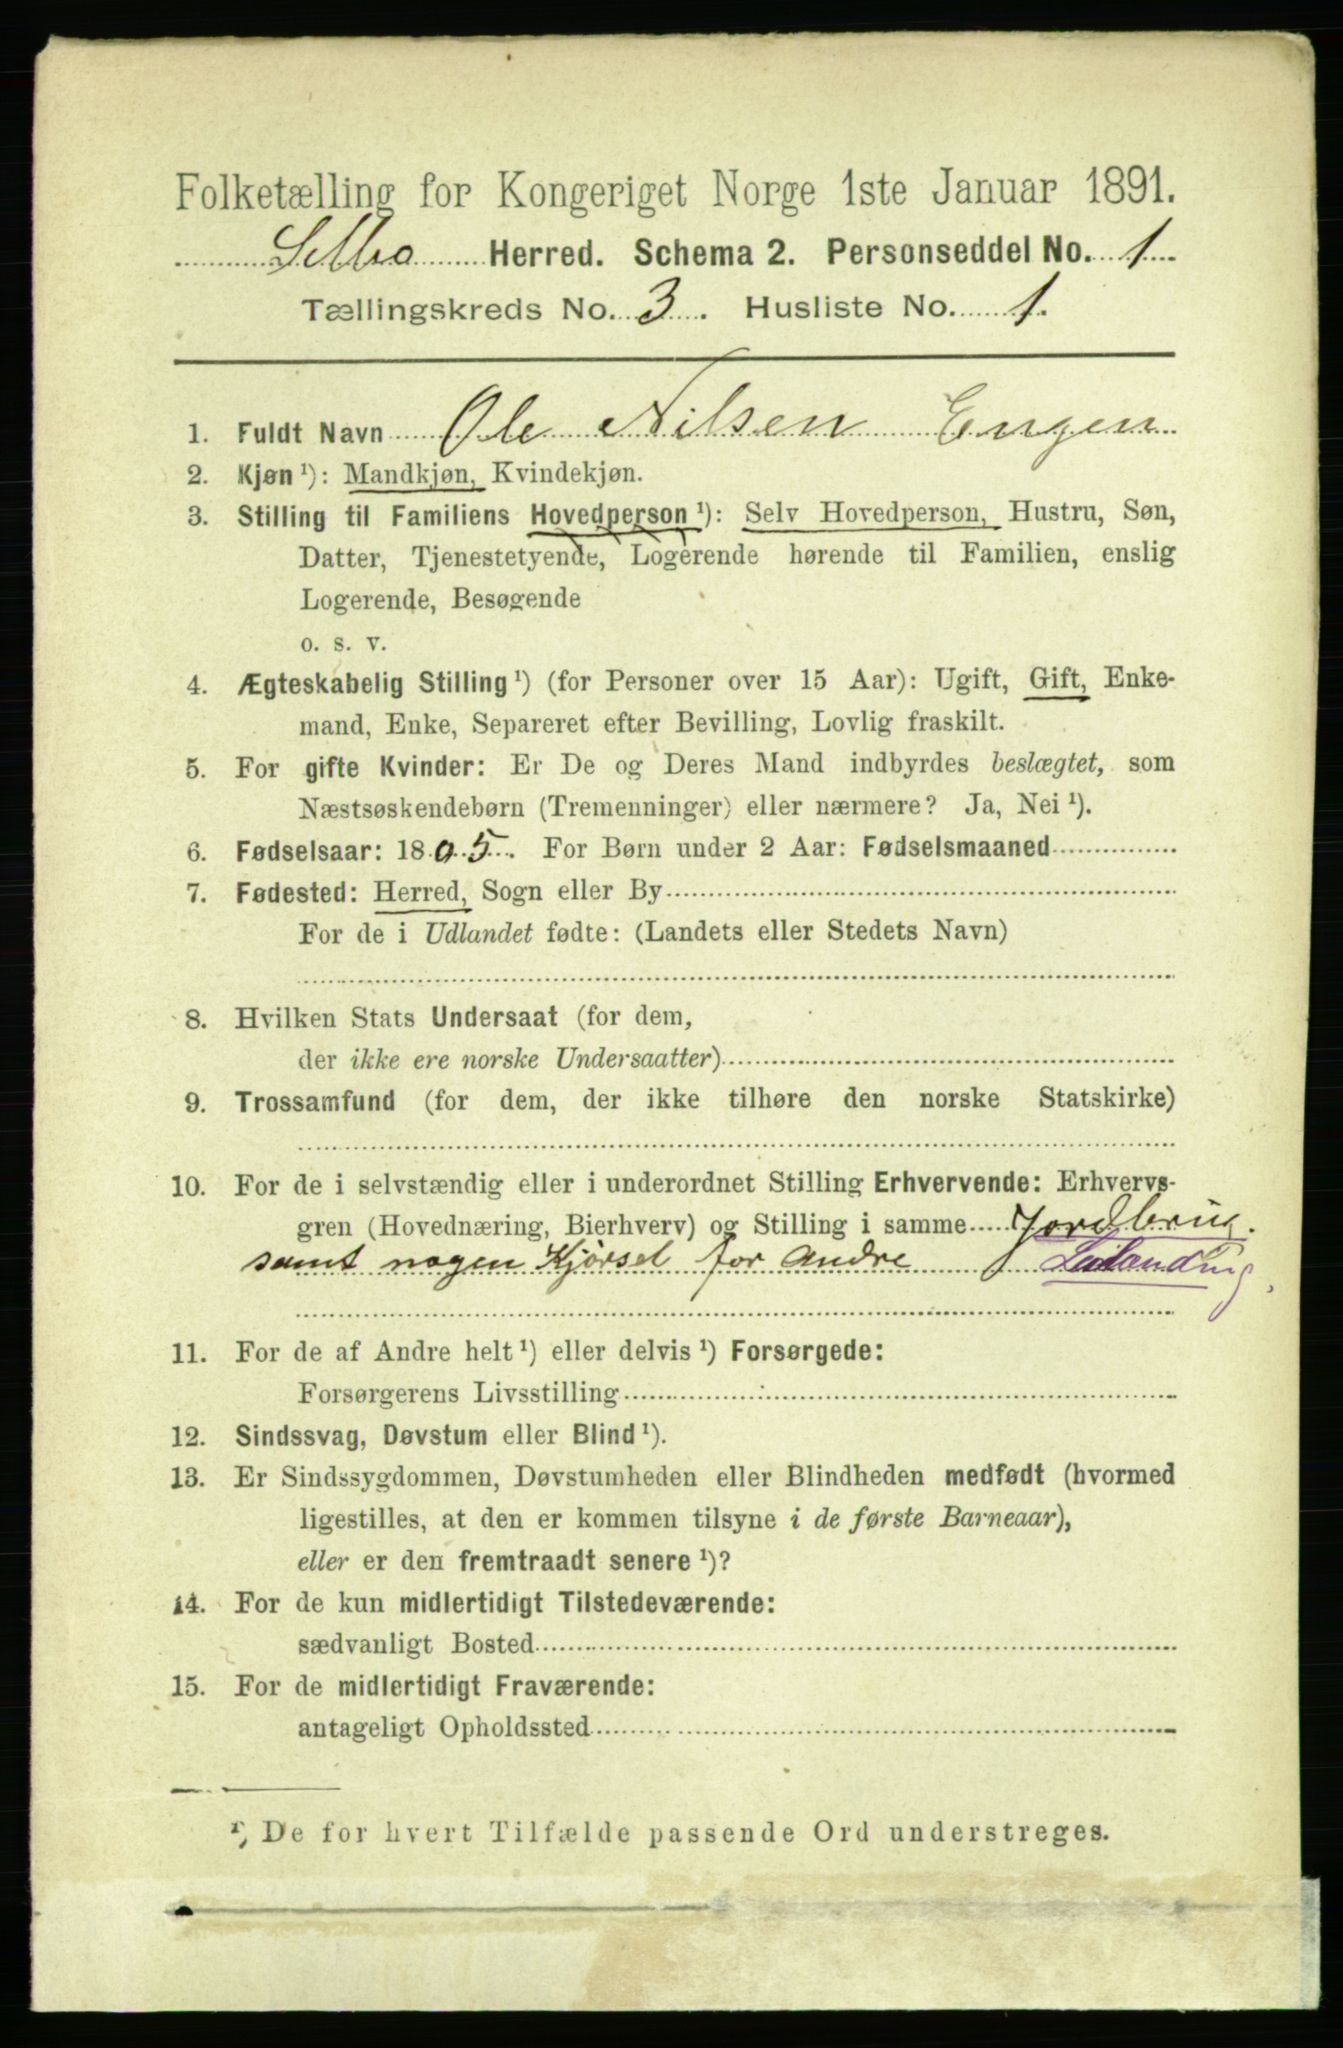 Folketælling for Kongeriget Norge 1ste Januar 1891.
Selbo Herred. Schema 2. Personseddel No. 1
Tællingskreds No. 3. Husliste No. 1.
1. Fuldt Navn Ole Nilsen Engen
2. Kjøn ¹): Mandkjøn, Kvindekjøn.
3. Stilling til Familiens Hovedperson ¹): Selv Hovedperson, Hustru, Søn,
Datter, Tjenestetyende, Logerende hørende til Familien, enslig
Logerende, Besøgende
o. s. v.
4. Ægteskabelig Stilling ¹) (for Personer over 15 Aar): Ugift, Gift, Enke-
mand, Enke, Separeret efter Bevilling, Lovlig fraskilt.
5. For gifte Kvinder: Er De og Deres Mand indbyrdes beslægtet, som
Næstsøskendebørn (Tremenninger) eller nærmere? Ja, Nei ¹).
6. Fødselsaar: 1805. For Børn under 2 Aar: Fødselsmaaned
7. Fødested: Herred, Sogn eller By
For de i Udlandet fødte: (Landets eller Stedets Navn)
8. Hvilken Stats Undersaat (for dem,
der ikke ere norske Undersaatter)
9. Trossamfund (for dem, der ikke tilhøre den norske Statskirke)
10. For de i selvstændig eller i underordnet Stilling Erhvervende: Erhvervs-
gren (Hovednæring, Bierhverv) og Stilling i samme Jordbrug.
samt nogen Kjørsel for Andre Leilending
11. For de af Andre helt ¹) eller delvis ¹) Forsørgede:
Forsørgerens Livsstilling
12. Sindssvag, Døvstum eller Blind ¹).
13. Er Sindssygdommen, Døvstumheden eller Blindheden medfødt (hvormed
ligestilles, at den er kommen tilsyne i de første Barneaar),
eller er den fremtraadt senere ¹)?
14. For de kun midlertidigt Tilstedeværende:
sædvanligt Bosted
15. For de midlertidigt Fraværende:
antageligt Opholdssted
¹) De for hvert Tilfælde passende Ord understreges.